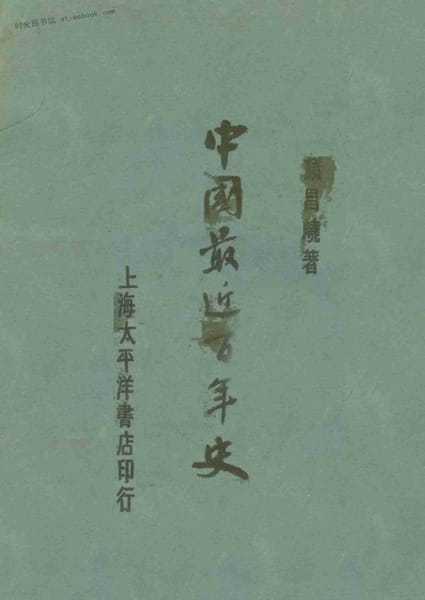 时光图书馆 etimebook.com
顏昌嶢著
中國最近百年史
上海太平洋書店印行